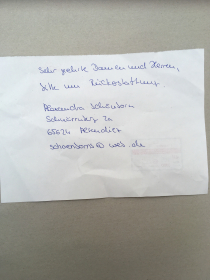 Sehr geehrte Damen und Herren,
bitte um Rückerstattung
Alexandra Schönborn
2a
65624 Altendiez
schoenborns@web.de